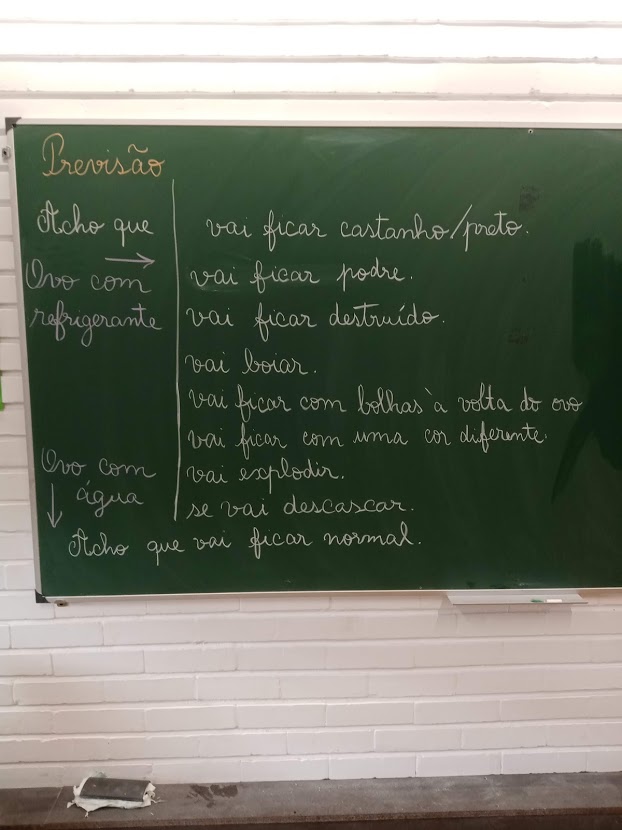 Previsão
Acho que
vai ficar castanho/preto.
→
Ovo com
refrigerante
vai ficar podre.
vai ficar destruído.
vai boiar.
vai ficar com bolhas à volta do ovo
vai ficar com uma cor diferente.
vai explodir.
se vai descascar.
Ovo com
água
↓
Acho que vai ficar normal.